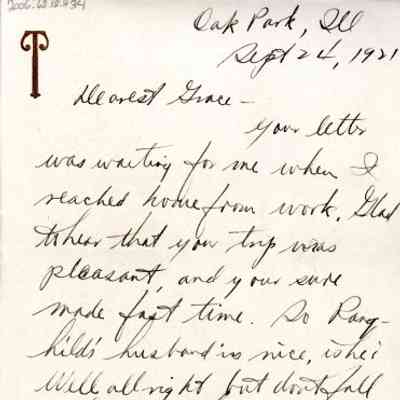 2006.62.12.434
T
Oak Park, Ill
Sept 24, 1921
Dearest Grace -
Your letter
was waiting for me when I
reached home from work. Glad
to hear that your trip was
pleasant, and your sure
made fast time. So Rang-
hild's husband is nice, is he?
Well, all right but don't fall